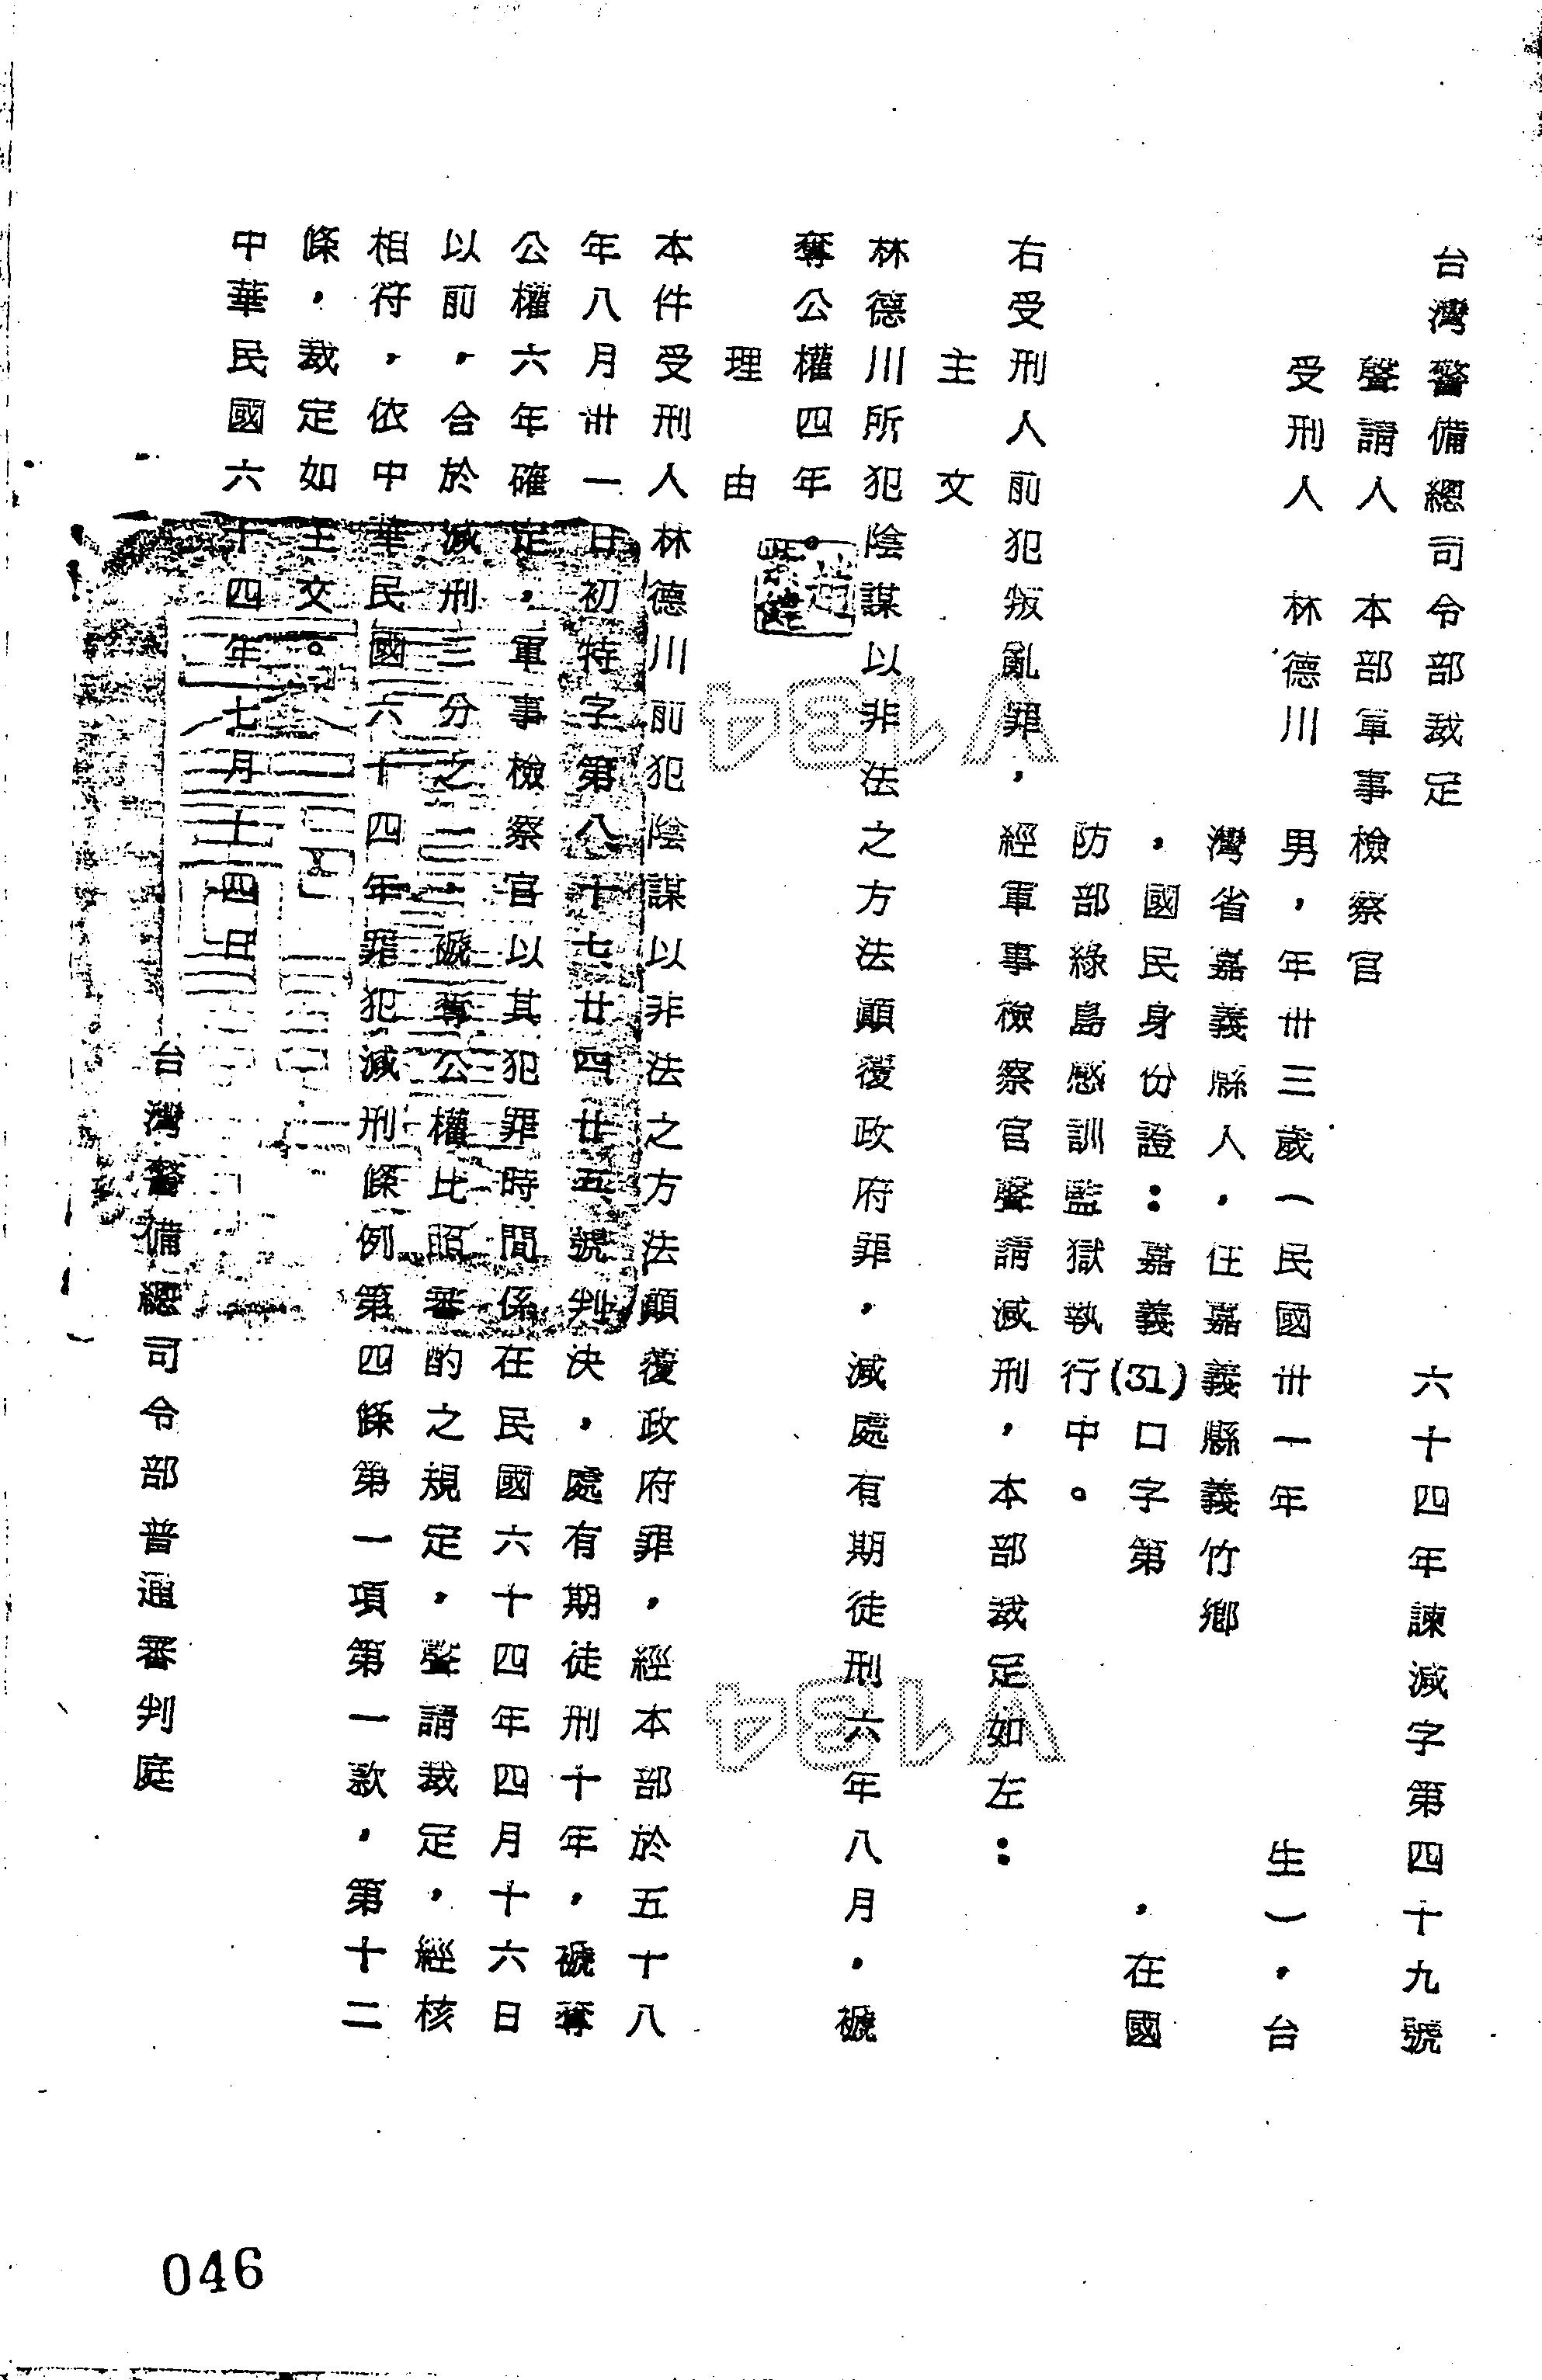 台灣警備總司令部裁定
六十四年諫減字第四十九號
聲請人 本部軍事檢察官
受刑人 林德川 男，年卅三歲（民國卅一年 生），台
灣省嘉義縣人，住嘉義縣義竹鄉
，國民身份證：嘉義(31)口字第 ，在國
防部綠島感訓監獄執行中。
右受刑人前犯叛亂罪，經軍事檢察官聲請減刑，本部裁定如左：
主文
林德川所犯陰謀以非法之方法顛覆政府罪，減處有期徒刑六年八月，褫
奪公權四年。
理由
本件受刑人林德川前犯陰謀以非法之方法顛覆政府罪，經本部於五十八
年八月卅一日初特字第八十七廿四廿五號判決，處有期徒刑十年，褫奪
公權六年確定，軍事檢察官以其犯罪時間係在民國六十四年四月十六日
以前，合於減刑三分之一，褫奪公權比照審酌之規定，聲請裁定，經核
相符，依中華民國六十四年罪犯減刑條例第四條第一項第一款，第十二
條，裁定如主文。
中華民國六十四年七月十四日
台灣警備總司令部普通審判庭
V134
V134
046